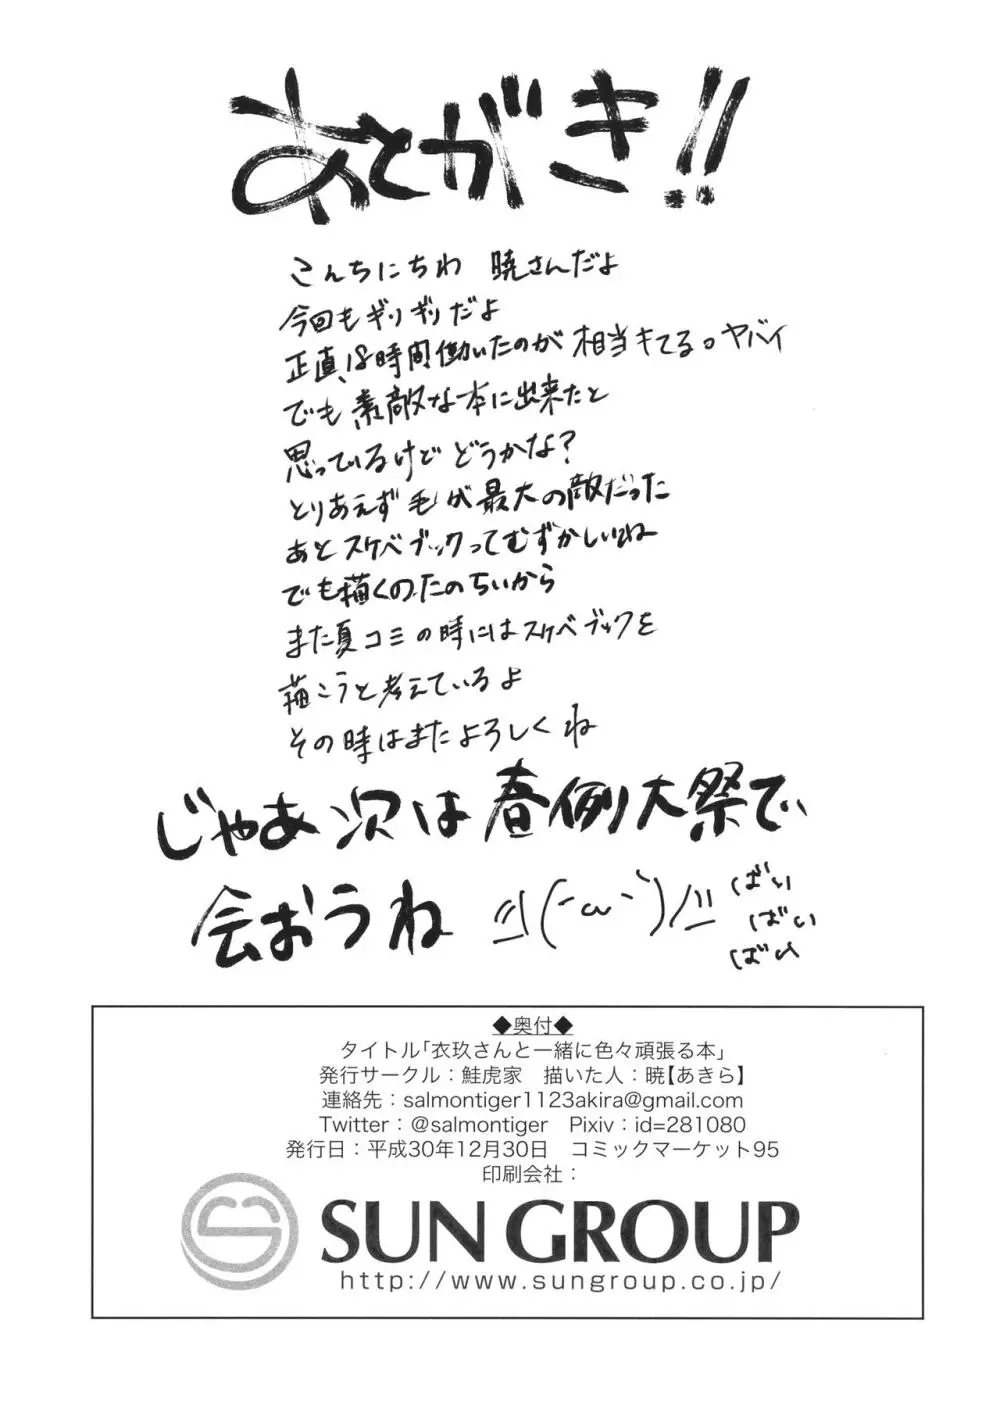 あとがき!!
こんちにちわ 暁さんだよ
今回もギリギリだよ
正直、18時間働いたのが相当キてる。ヤバイ
でも素敵な本に出来たと
思っているけどどうかな?
とりあえず毛が最大の敵だった
あとスケベブックってむずかしいね
でも描くのたのちいから
また夏コミの時にはスケベブックを
描こうと考えているよ
その時はまたよろしくね
じゃあ次は春例大祭で
会おうね ((´ω`)ノ))
ばい
ばい
ばい
◆奥付◆
タイトル「衣玖さんと一緒に色々頑張る本」
発行サークル:鮭虎家 描いた人:暁【あきら】
連絡先:salmontiger1123akira@gmail.com
Twitter:@salmontiger Pixiv:id=281080
発行日:平成30年12月30日 コミックマーケット95
印刷会社:
SUN GROUP
http://www.sungroup.co.jp/